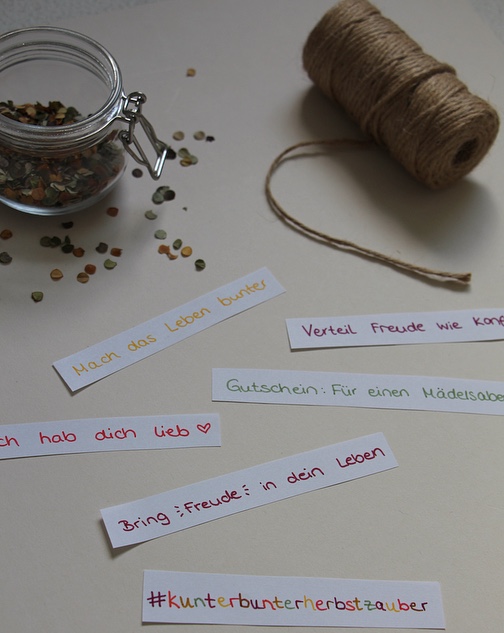 Mach das Leben bunter
Verteil Freude wie Konf
Gutschein: Für einen Mädelsabe
ch hab dich lieb ♡
Bring Freude in dein Leben
#kunterbunterherbstzauber